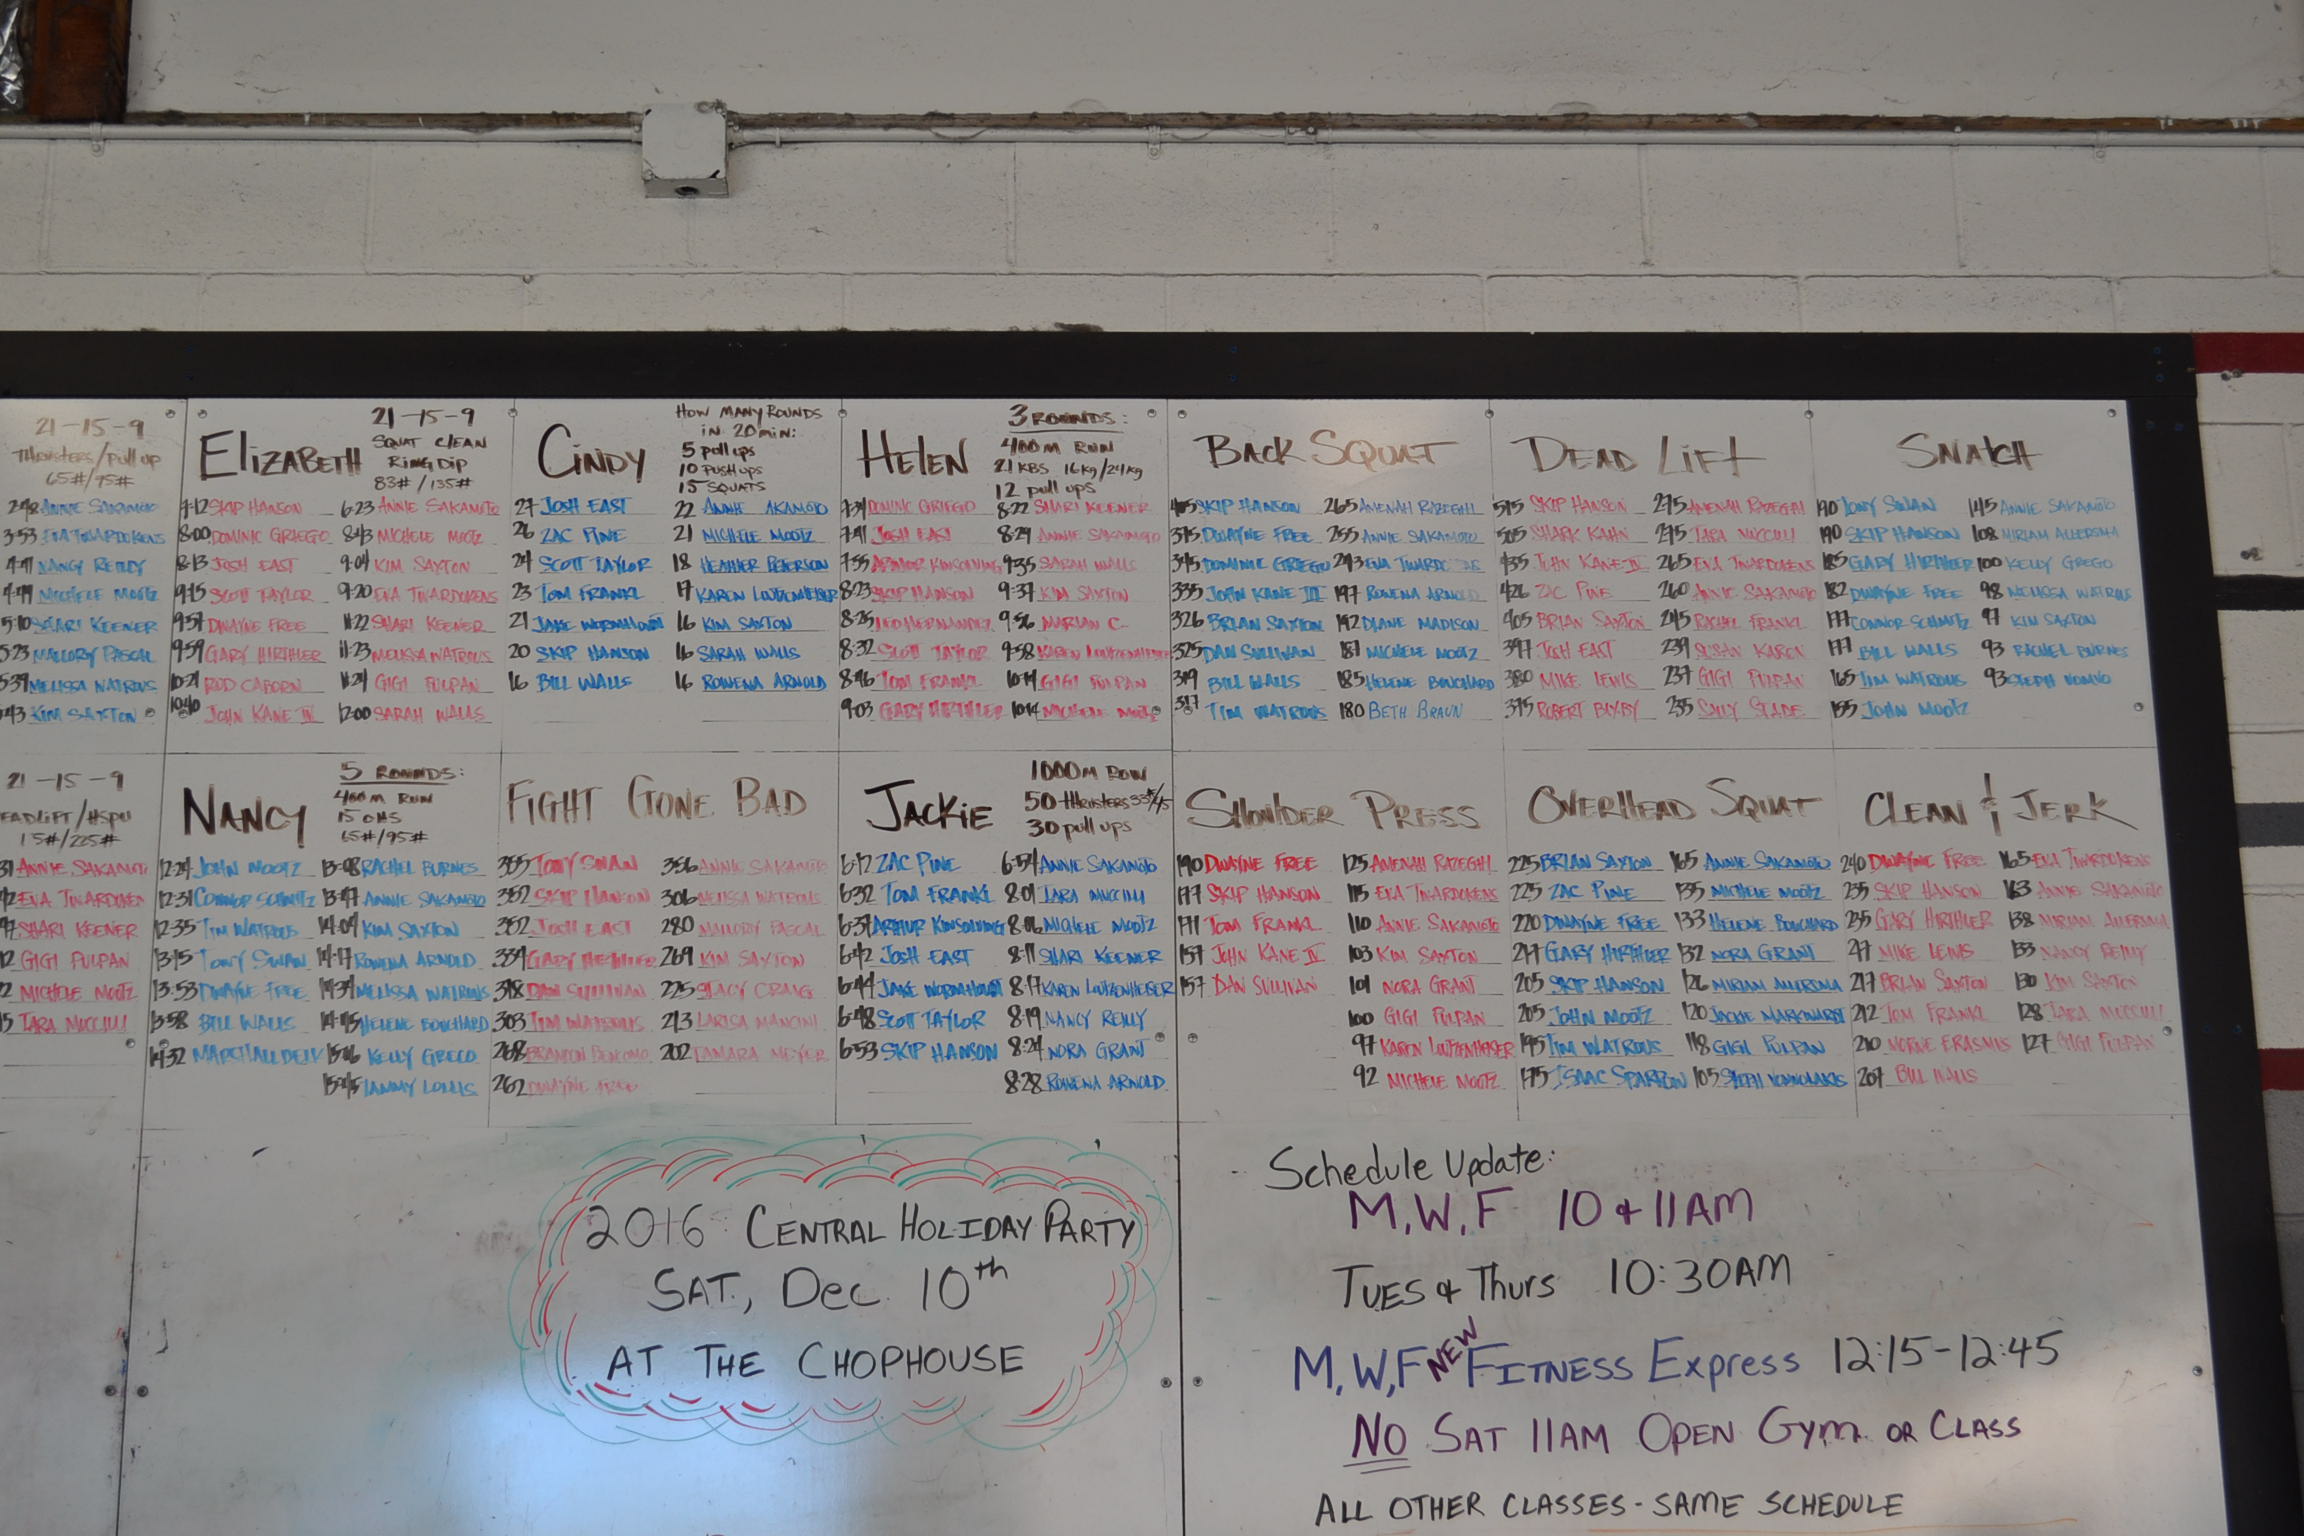 21-15-9
Thrusters/pull up
65#/95#
2:48 Annie Sakamoto
3:53 Eva Twardokens
Nancy Reilly
Michele Mootz
5:10 Shari Keener
5:23 Mallory Pascal
5:39 Melissa Watrous
Kim Saxton
Elizabeth
21-15-9
Squat Clean
Ring Dip
83#/135#
7:12 Skip Hanson 6:23 Annie Sakamoto
8:00 Dominic Griego 8:43 Michele Mootz
8:13 Josh East 9:04 Kim Saxton
9:15 Scott Taylor 9:20 Eva Twardokens
9:57 Dwayne Free 11:22 Shari Keener
9:59 Gary Hirthler 11:23 Melissa Watrous
10:21 Rod Caborn 11:24 Gigi Fulpan
10:40 John Kane IV 12:00 Sarah Walls
Cindy
How many rounds
in 20 min:
5 pull ups
10 push ups
15 squats
27 Josh East 22 Annie Akamoto
26 Zac Pine 21 Michele Mootz
24 Scott Taylor 18 Heather Peterson
23 Tom Frankl 17 Karen Lowtzenheiser
21 Jake Wormhoudt 16 Kim Saxton
20 Skip Hanson 16 Sarah Walls
16 Bill Walls 16 Rowena Arnold
Helen
3 Rounds:
400m Run
21 KBS 16kg/24kg
12 pull ups
7:34 Dominic Griego 8:22 Shari Keener
7:41 Josh East 8:29 Annie Sakamoto
7:55 Kinsolving 9:35 Sarah Walls
8:23 Skip Hanson 9:37 Kim Saxton
8:25 Hernandez 9:56 Marian C.
8:32 Scott Taylor 9:58 Karen
8:46 Tom Frankl 10:14 Gigi Fulpan
9:03 Gary Hirthler 10:14 Michele Mootz
Back Squat
405 Skip Hanson 265 Amenah Razeghi
375 Dwayne Free 255 Annie Sakamoto
345 Dominic Griego 243 Eva
335 John Kane III 197 Rowena Arnold
326 Brian Saxton 192 Diane Madison
325 Dan Sullivan 187 Michele Mootz
319 Bill Walls 185 Helene Bouchard
317 Tim Watrous 180 Beth Braun
Dead Lift
515 Skip Hanson 275 Amenah Razeghi
505 Shark Kahn 275 Tara Muccilli
435 John Kane IV 265 Eva Twardokens
426 Zac Pine 260 Annie Sakamoto
405 Brian Saxton 245 Rachel Frankl
397 Josh East 239 Susan Karon
380 Mike Lewis 237 Gigi Fulpan
375 Robert Bixby 235 Sally Slade
Snatch
190 Tony Swan 145 Annie Sakamoto
190 Skip Hanson 108 Miriam Allersma
185 Gary Hirthler 100 Kelly Grego
182 Dwayne Free 98 Melissa Watrous
177 Connor Schmitz 97 Kim Saxton
177 Bill Walls 93 Rachel Burnes
165 Tim Watrous 93 Steph
155 John Mootz
21-15-9
eadlift/HSPU
15#/225#
Annie Sakamoto
Eva Twardoken
Shari Keener
Gigi Fulpan
Michele Mootz
Tara Muccilli
Nancy
5 Rounds:
400m Run
15 OHS
65#/95#
12:24 John Mootz 13:08 Rachel Burnes
12:31 Connor Schmitz 13:47 Annie Sakamoto
12:35 Tim Watrous 14:09 Kim Saxton
13:15 Tony Swan 14:17 Rowena Arnold
13:53 Dwayne Free 14:34 Melissa Watrous
13:58 Bill Walls 14:45 Helene Bouchard
14:32 15:16 Kelly Greco
15:45 Tammy Lollis
Fight Gone Bad
355 Tony Swan 356 Annie Sakamoto
352 Skip Hanson 306 Melissa Watrous
352 Josh East 280 Mallory Pascal
334 Gary Hirthler 269 Kim Saxton
318 Dan Sullivan 225 Stacy Craig
303 Tim Watrous 213 Larisa Mancini
268 Branton 202 Tamara Meyer
262 Dwayne Free
Jackie
1000m Row
50 thrusters 33#/45
30 pull ups
6:17 Zac Pine 6:54 Annie Sakamoto
6:32 Tom Frankl 8:01 Tara Muccilli
6:37 Arthur Kinsolving 8:06 Michele Mootz
6:42 Josh East 8:11 Shari Keener
6:44 Jake Wormhoudt 8:17 Karen Lowtzenheiser
6:48 Scott Taylor 8:19 Nancy Reilly
6:53 Skip Hanson 8:24 Nora Grant
8:28 Rowena Arnold
Shoulder Press
190 Dwayne Free 125 Amenah Razeghi
177 Skip Hanson 115 Eva Twardokens
171 Tom Frankl 110 Annie Sakamoto
157 John Kane IV 103 Kim Saxton
157 Dan Sullivan 101 Nora Grant
100 Gigi Fulpan
97 Karen Lowtzenheiser
92 Michele Mootz
Overhead Squat
225 Brian Saxton 165 Annie Sakamoto
225 Zac Pine 135 Michele Mootz
220 Dwayne Free 133 Helene Bouchard
217 Gary Hirthler 132 Nora Grant
205 Skip Hanson 126 Miriam Allersma
205 John Mootz 120 Jackie Markwardt
195 Tim Watrous 118 Gigi Fulpan
175 Isaac Sparrow 105 Steph Vomvolakis
Clean & Jerk
240 Dwayne Free 165 Eva Twardokens
235 Skip Hanson 163 Annie Sakamoto
235 Gary Hirthler 138 Miriam Allersma
217 Mike Lewis 133 Nancy Reilly
217 Brian Saxton 130 Kim Saxton
212 Tom Frankl 128 Tara Muccilli
210 Norne Erasmus 127 Gigi Fulpan
207 Bill Walls
2016 Central Holiday Party
Sat., Dec. 10th
At The Chophouse
Schedule Update:
M, W, F 10 & 11AM
Tues & Thurs 10:30AM
M, W, F NEW Fitness Express 12:15-12:45
NO Sat 11AM Open Gym or Class
All Other Classes - Same Schedule